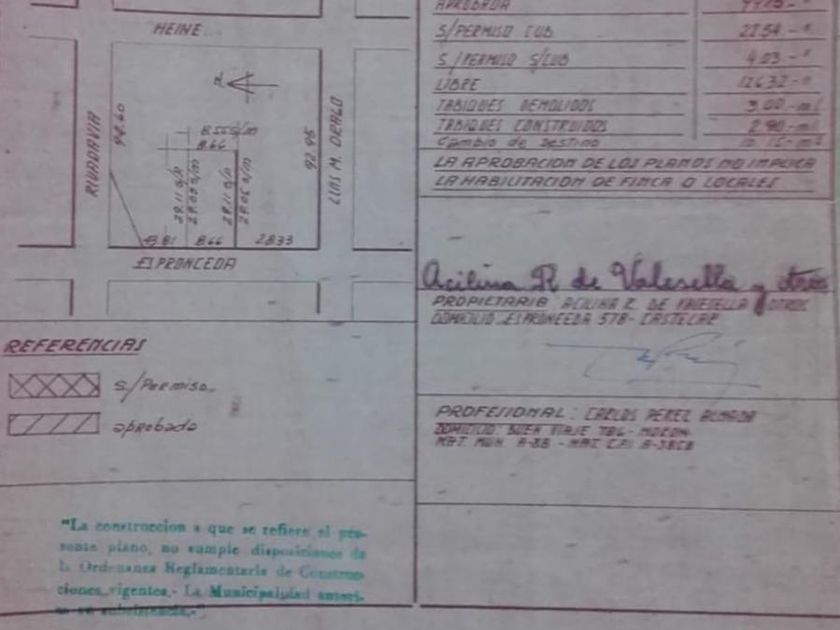 HEINE
RIVADAVIA
94.60
LUIS M. DRAGO
92.95
8.55 S/M
8.66
29.11 S/P
29.11 S/P
13.81 8.66 28.33
ESPRONCEDA
REFERENCIAS
S/Permiso
aprobado
"La construccion a que se refiere el pre-
sente plano, no cumple disposiciones de
la Ordenanza Reglamentaria de Construc-
ciones vigentes.- La Municipalidad autori-
za su subsistencia.-"
APROBADA
S/PERMISO CUB 22.54
S/PERMISO S/CUB 4.03
LIBRE 126.32
TABIQUES DEMOLIDOS 3.00 ml
TABIQUES CONSTRUIDOS 2.90 ml
Cambio de destino
LA APROBACION DE LOS PLANOS NO IMPLICA
LA HABILITACION DE FINCA O LOCALES
Acilina R de Valesella y otros
PROPIETARIA ACILINA R. DE VALESELLA y OTROS
DOMICILIO ESPRONCEDA 578 - CASTELAR
PROFESIONAL: CARLOS PEREZ ALMADA
DOMICILIO: BUEN VIAJE 786 - MORON
MAT. MUN